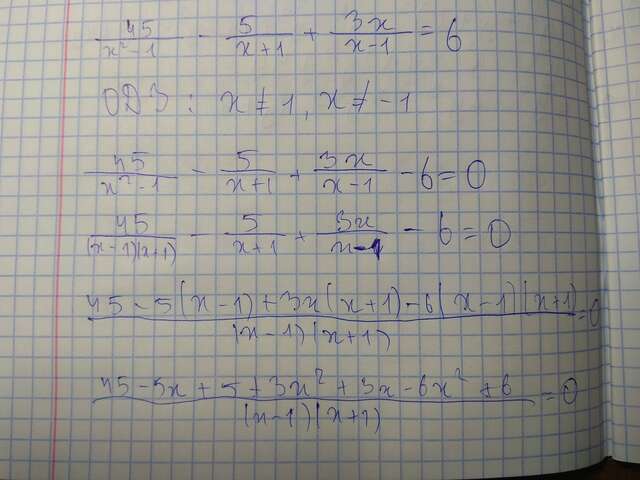 45/(x²-1) - 5/(x+1) + 3x/(x-1) = 6
ОДЗ : x ≠ 1, x ≠ -1
45/(x²-1) - 5/(x+1) + 3x/(x-1) - 6 = 0
45/((x-1)(x+1)) - 5/(x+1) + 3x/(x-1) - 6 = 0
(45 - 5(x-1) + 3x(x+1) - 6(x-1)(x+1))/((x-1)(x+1)) = 0
(45 - 5x + 5 + 3x² + 3x - 6x² + 6)/((x-1)(x+1)) = 0